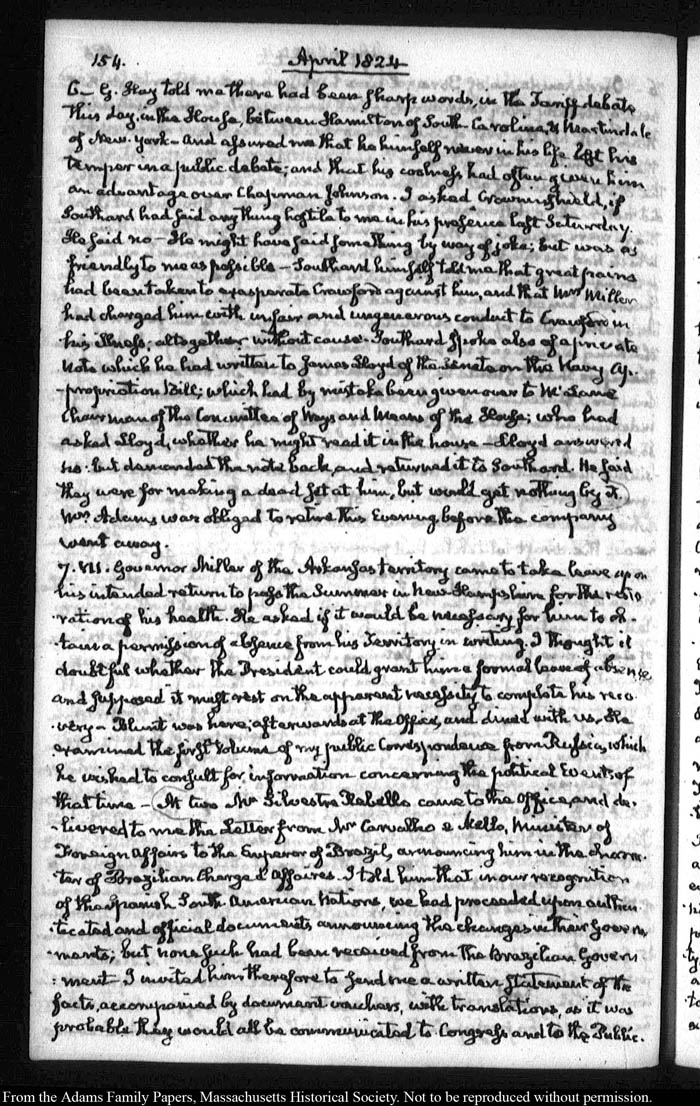 154. April 1824
6— G. Hay told me there had been sharp words, in the Tariff debate
this day, in the House, between Hamilton of South-Carolina, & Martindale
of New-York— and assured me that he himself never in his life lost his
temper in a public debate; and that his coolness had often given him
an advantage over Chapman Johnson. I asked Crowninshield, if
Southard had said any thing hostile to me in his presence last Saturday.
He said no— He might have said something by way of joke; but was as
friendly to me as possible— Southard himself told me that great pains
had been taken to exasperate Crawford against him, and that Mrs Miller
had charged him with unfair and ungenerous conduct to Crawford in
his illness; altogether without cause. Southard spoke also of a private
Note which he had written to James Lloyd of the Senate on the Navy Ap-
-propriation Bill; which had by mistake been given over to McLane
Chairman of the Committee of Ways and Means of the House; who had
asked Lloyd, whether he might read it in the house— Lloyd answered
no: but demanded the note back, and returned it to Southard. He said
they were for making a dead set at him, but would get nothing by it.
Mrs Adams was obliged to retire this Evening before the company
went away.
7. VII. Governor Miller of the Arkansas territory came to take leave upon
his intended return to pass the Summer in New-Hampshire for the resto
-ration of his health. He asked if it would be necessary for him to ob-
-tain a permission of absence from his Territory in writing. I thought it
doubtful whether the President could grant him a formal leave of absence
and supposed it must rest on the apparent necessity to complete his reco
-very— Blunt was here; afterwards at the Office, and dined with us. He
examined the first volume of my public Correspondence from Russia, which
he wished to consult for information concerning the political Events of
that time— At two Mr Silvestre Rebello came to the Office, and de-
-livered to me the Letter from Mr Carvalho e Mello, Minister of
Foreign Affairs to the Emperor of Brazil, announcing him in the charac-
ter of Brazilian Chargé d'Affaires. I told him that in our recognition
of the Spanish South American Nations, we had proceeded upon authen
-ticated and official documents announcing the changes in their Govern
-ments; but none such had been received from the Brazilian Govern
-ment. I invited him therefore to send me a written statement of the
facts, accompanied by document vouchers, with translations, as it was
probable they would all be communicated to Congress and to the Public.
From the Adams Family Papers, Massachusetts Historical Society. Not to be reproduced without permission.